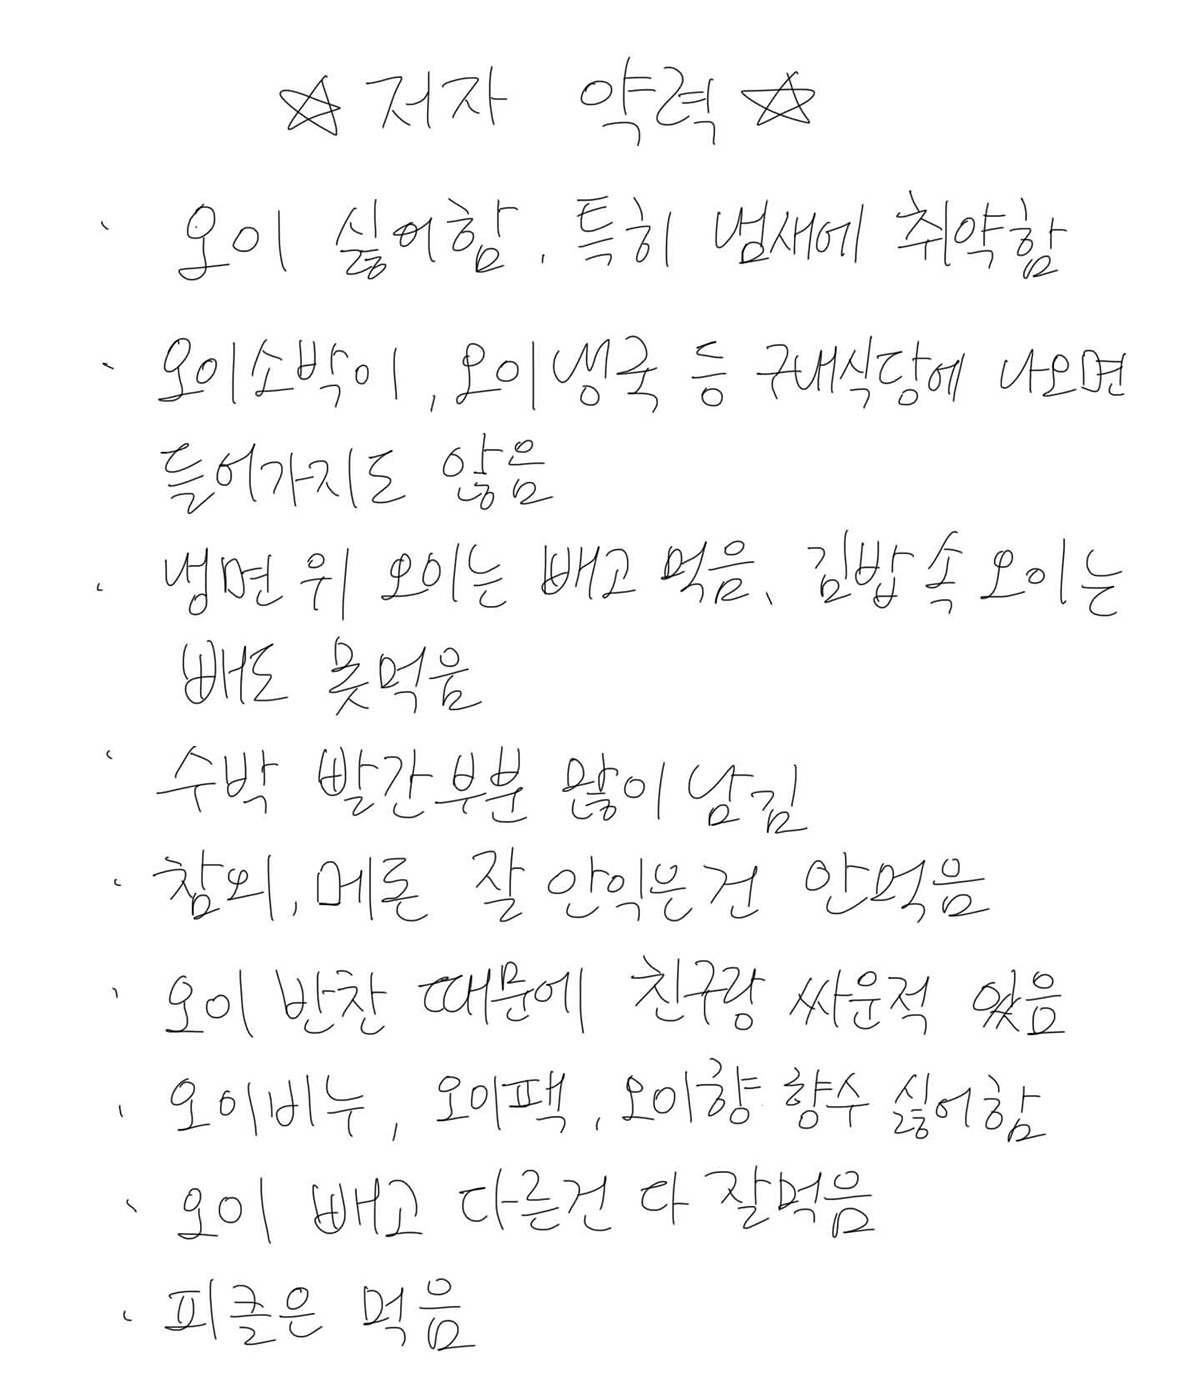 ☆저자 약력☆
· 오이 싫어함. 특히 냄새에 취약함
· 오이소박이, 오이냉국 등 구내식당에 나오면
들어가지도 않음
· 냉면 위 오이는 빼고 먹음. 김밥 속 오이는
빼도 못먹음
· 수박 빨간부분 많이 남김
· 참외, 메론 잘 안익은건 안먹음
· 오이 반찬 때문에 친구랑 싸운적 있음
· 오이비누, 오이팩, 오이향 향수 싫어함
· 오이 빼고 다른건 다 잘먹음
· 피클은 먹음